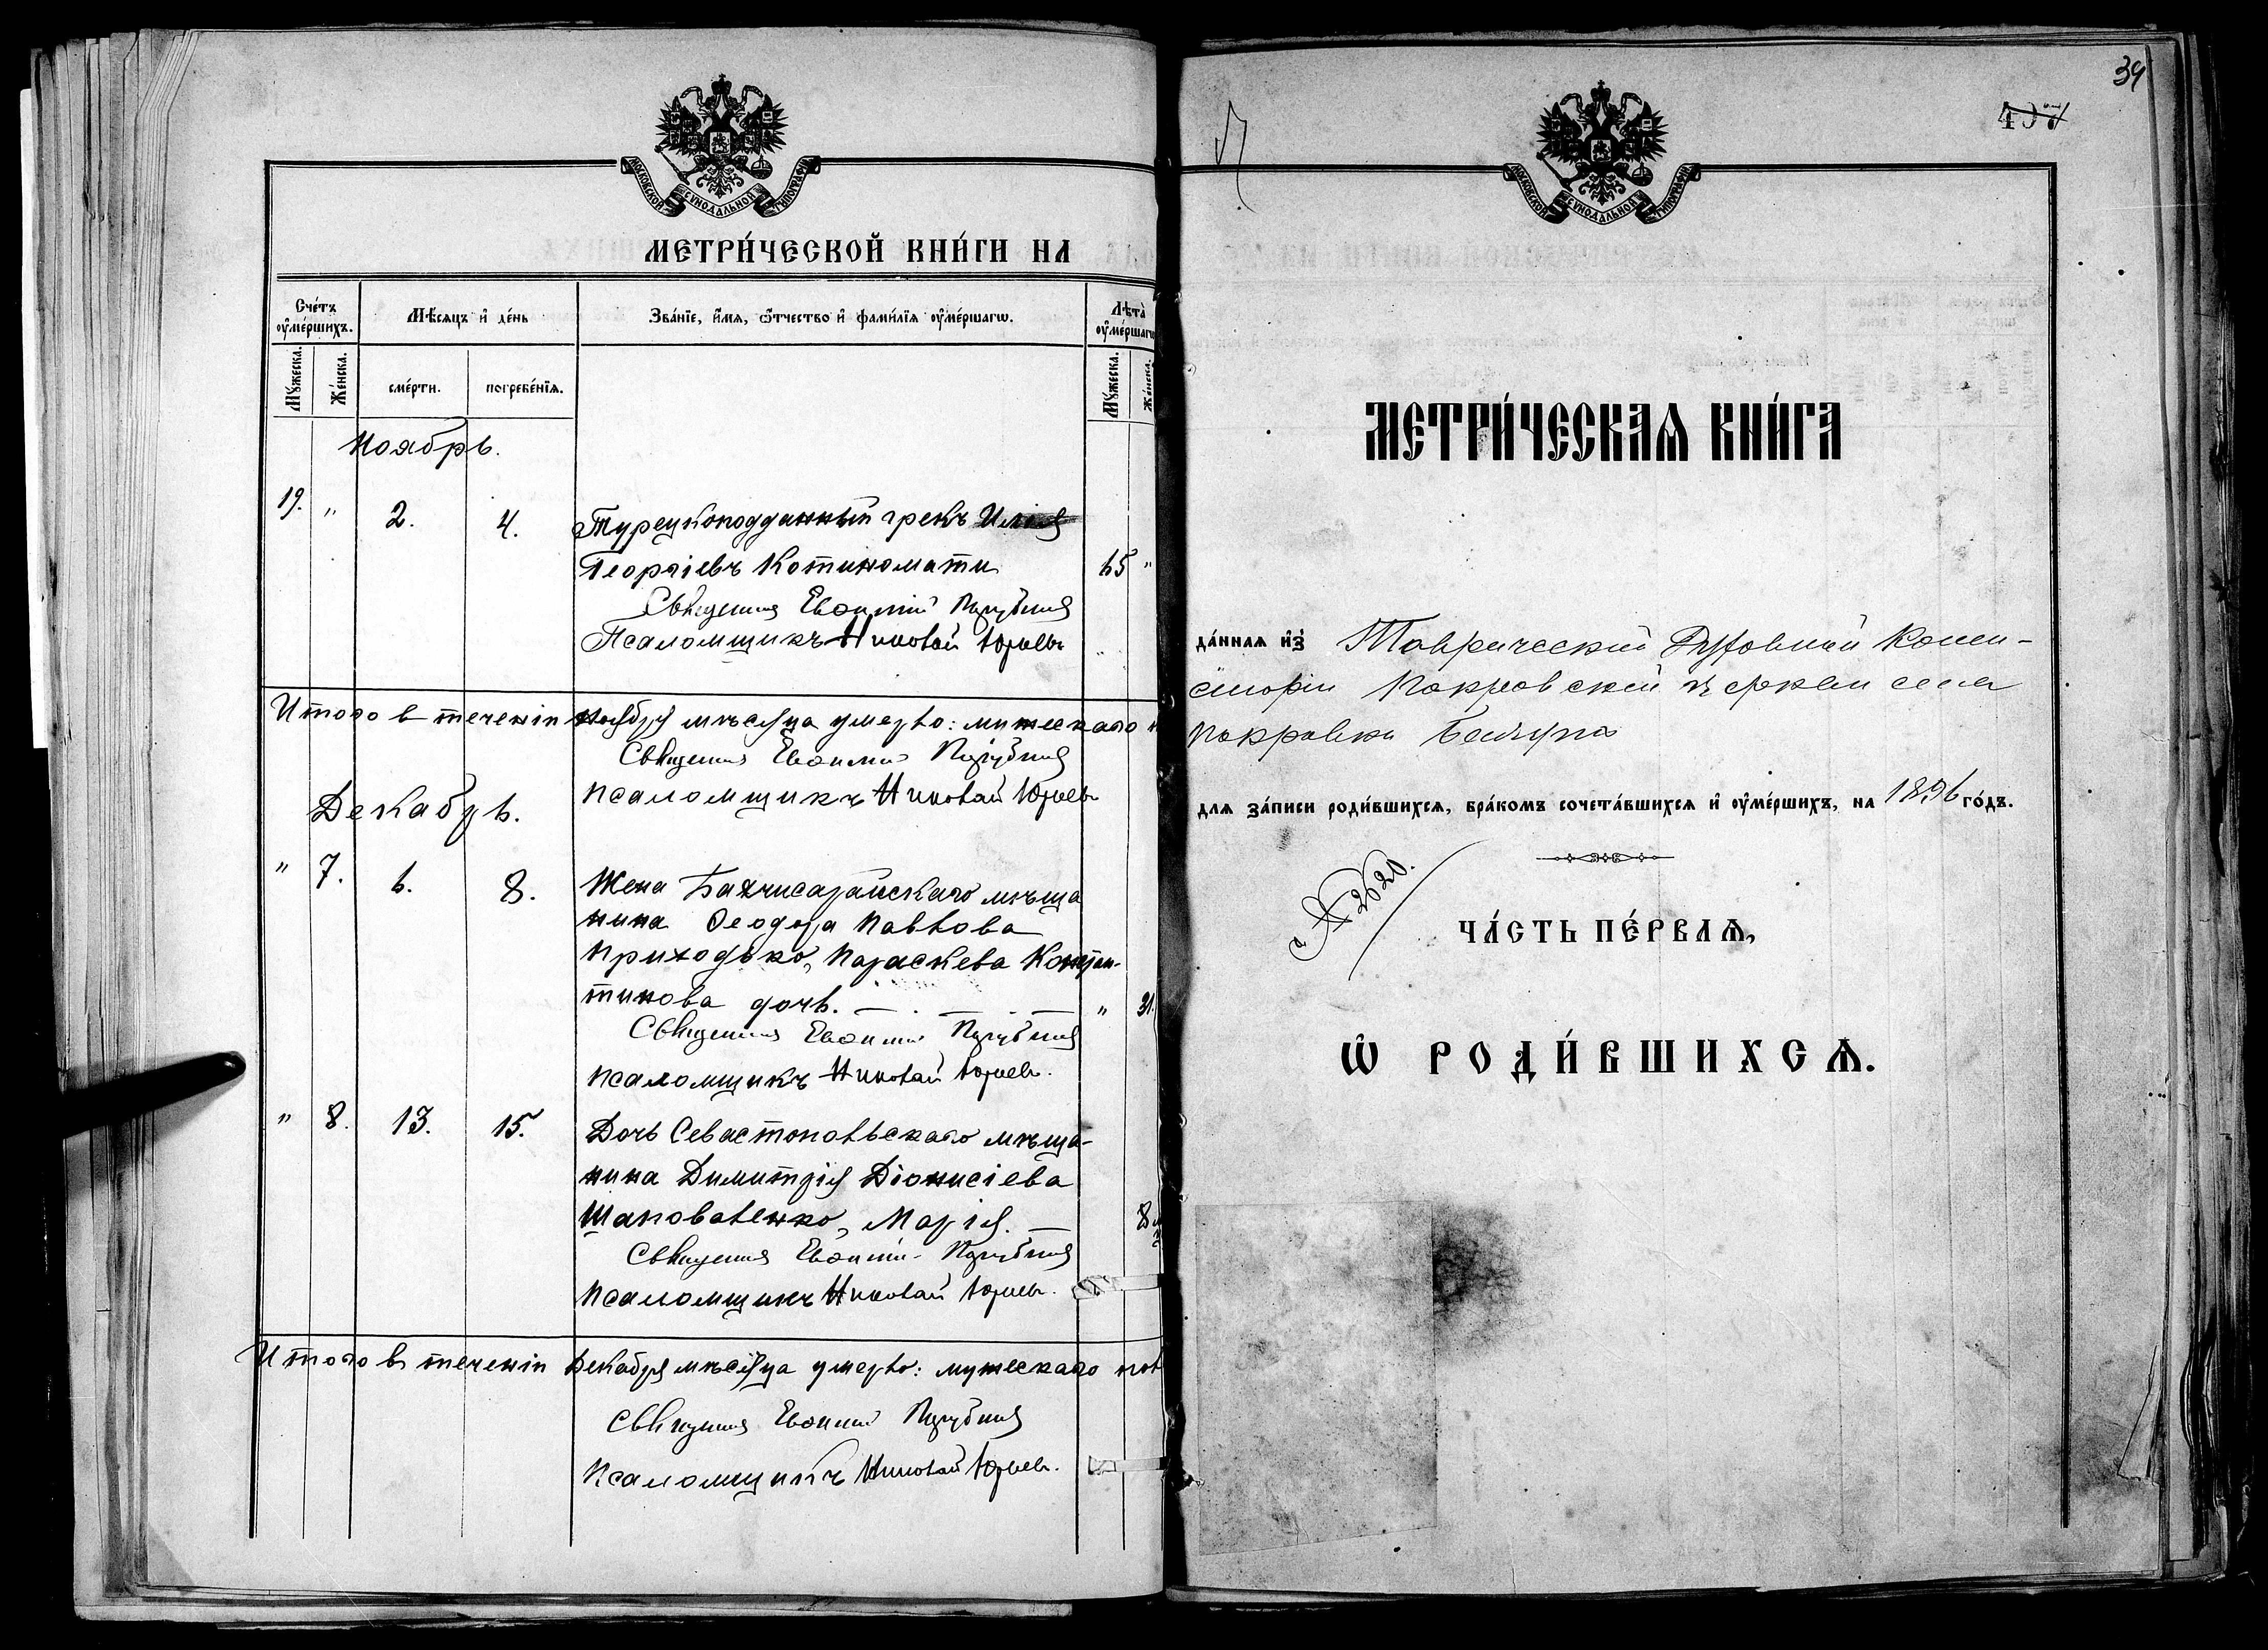 МОСКОВСКОЙ СѴНОДАЛЬНОЙ ТИПОГРАФІИ
МЕТРИ́ЧЕСКОЙ КНИ́ГИ НА
Сче́тъ оу҆ме́ршихъ.
Мѣ́сяцъ и҆ де́нь
Зва́нїе, и҆́мя, ѻ҆́тчество и҆ фами́лїя оу҆ме́ршагѡ.
Лѣта̀ оу҆ме́ршагѡ
Мꙋ́жеска.
Же́нска.
сме́рти.
погребе́нїя.
Мꙋ́жеска.
Же́нска.
Ноябрь.
19. " 2. 4. Турецкоподданный грекъ Илія
Георгіевъ Котиномати 65 "
Священникъ Евѳимій
Псаломщикъ Николай Юрьевъ
Итого в теченіи Ноября мѣсяца умерло: мужескаго
Священникъ Евѳимій
Псаломщикъ Николай Юрьевъ
Декабрь.
" 7. 6. 8. Жена Бахчисарайскаго мѣща
нина Ѳеодора Павлова
Приходько, Параскева Констан-
тинова дочь. " 31.
Священникъ Евѳимій
Псаломщикъ Николай Юрьевъ.
" 8. 13. 15. Дочь Севастопольскаго мѣща-
нина Димитрія Діонисіева
Шаповаленко, Марія. 8
Священникъ Евѳимій
Псаломщикъ Николай Юрьевъ.
Итого в теченіи Декабря мѣсяца умерло: мужескаго пол
Священникъ Евѳимій
Псаломщикъ Николай Юрьевъ.
39
497
МОСКОВСКОЙ СѴНОДАЛЬНОЙ ТИПОГРАФІИ
МЕТРИ́ЧЕСКАѦ КНИ́ГА
да́нная и҆з̾ Таврической Духовной Конси-
сторіи Покровской церкви села
Покровки
для за́писи роди́вшихся, бра́комъ сочета́вшихся и҆ оу҆ме́ршихъ, на 1896 го́дъ.
№ 2620.
ЧА́СТЬ ПЕ́РВАѦ,
Ѡ҆ РОДИ́ВШИХСѦ.